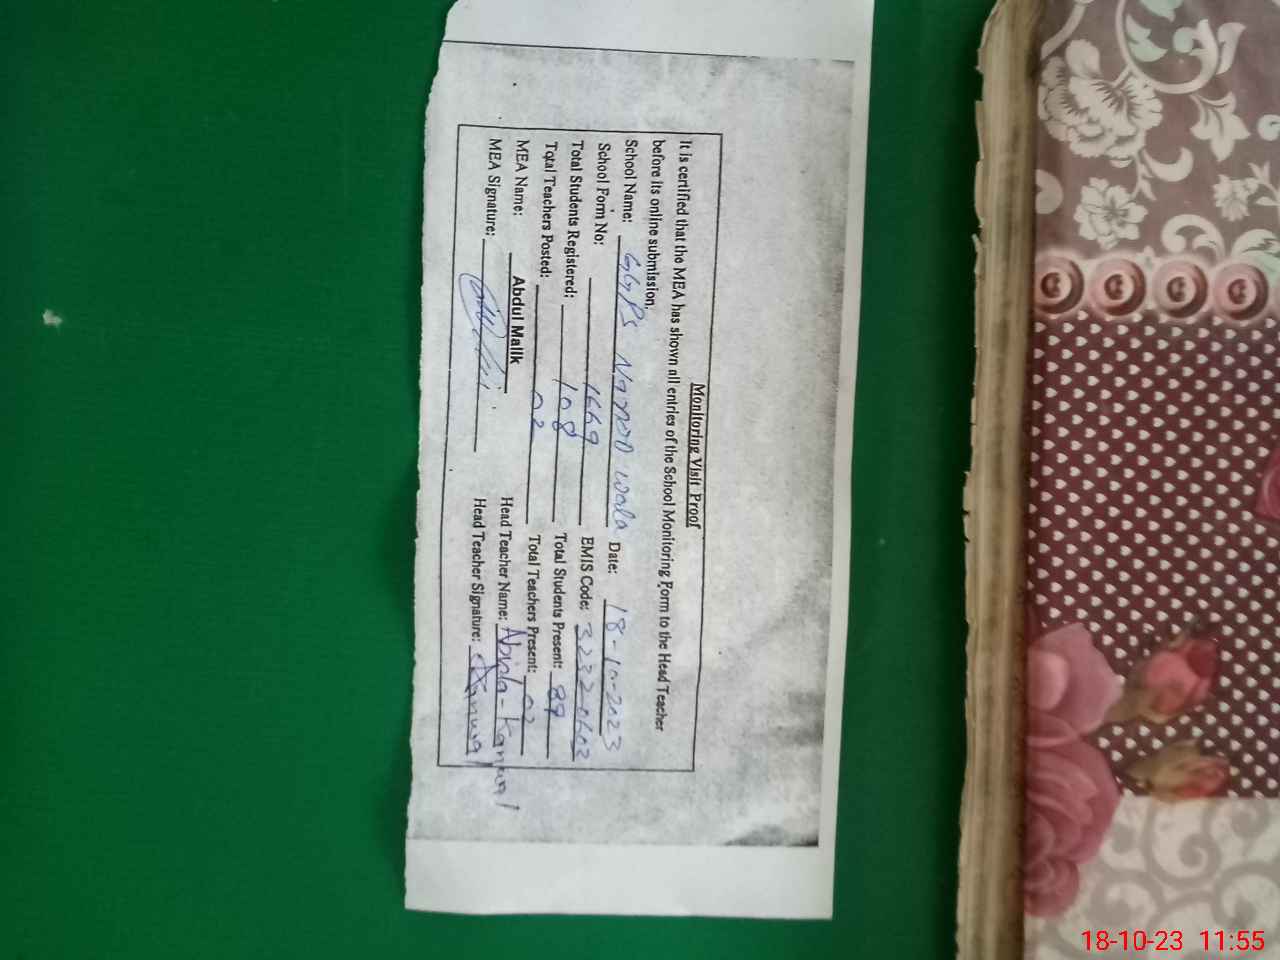 Monitoring Visit Proof
It is certified that the MEA has shown all entries of the School Monitoring Form to the Head Teacher
before its online submission.
School Name: GGPS wala Date: 18-10-2023
School Form No: 1669 EMIS Code: 32320602
Total Students Registered: 108 Total Students Present: 89
Total Teachers Posted: 02 Total Teachers Present: 02
MEA Name: Abdul Malik Head Teacher Name: Kanwal
MEA Signature: Head Teacher Signature: Kanwal
18-10-23 11:55